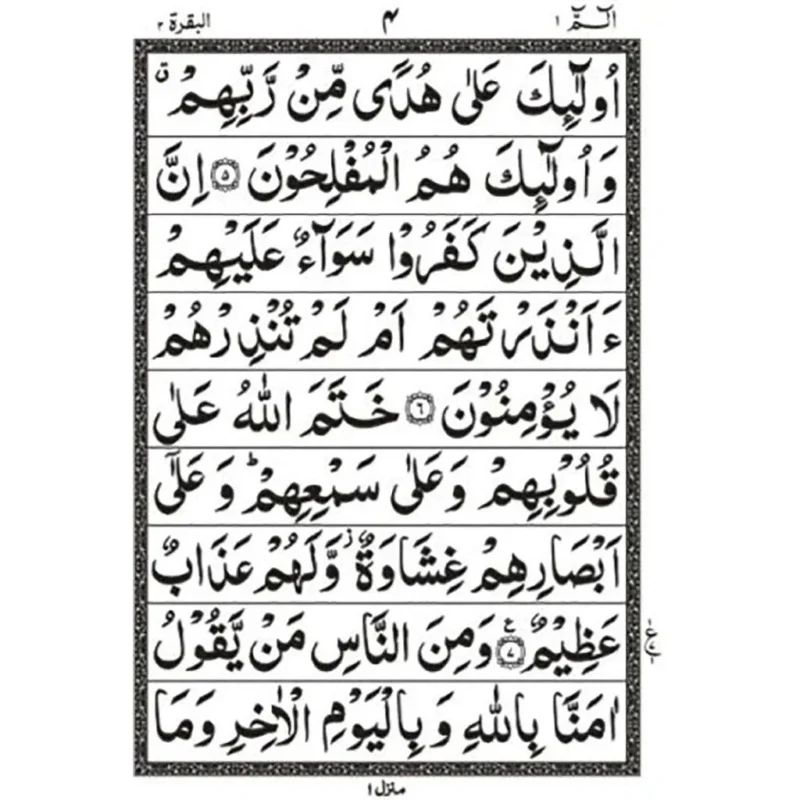 الٓمّٓ ۱ ۴ البقرة ۲
اُولٰٓئِكَ عَلٰى هُدًى مِّنْ رَّبِّهِمْ ۛق
وَ اُولٰٓئِكَ هُمُ الْمُفْلِحُوْنَ ﴿۵﴾ اِنَّ
الَّذِيْنَ كَفَرُوْا سَوَآءٌ عَلَيْهِمْ
ءَاَنْذَرْتَهُمْ اَمْ لَمْ تُنْذِرْهُمْ
لَا يُؤْمِنُوْنَ ﴿۶﴾ خَتَمَ اللّٰهُ عَلٰى
قُلُوْبِهِمْ وَ عَلٰى سَمْعِهِمْ ؕ وَ عَلٰٓى
اَبْصَارِهِمْ غِشَاوَةٌ ؗ وَّ لَهُمْ عَذَابٌ
عَظِيْمٌ ﴿۷﴾ ع وَمِنَ النَّاسِ مَنْ يَّقُوْلُ
اٰمَنَّا بِاللّٰهِ وَ بِالْيَوْمِ الْاٰخِرِ وَمَا
منزل ۱